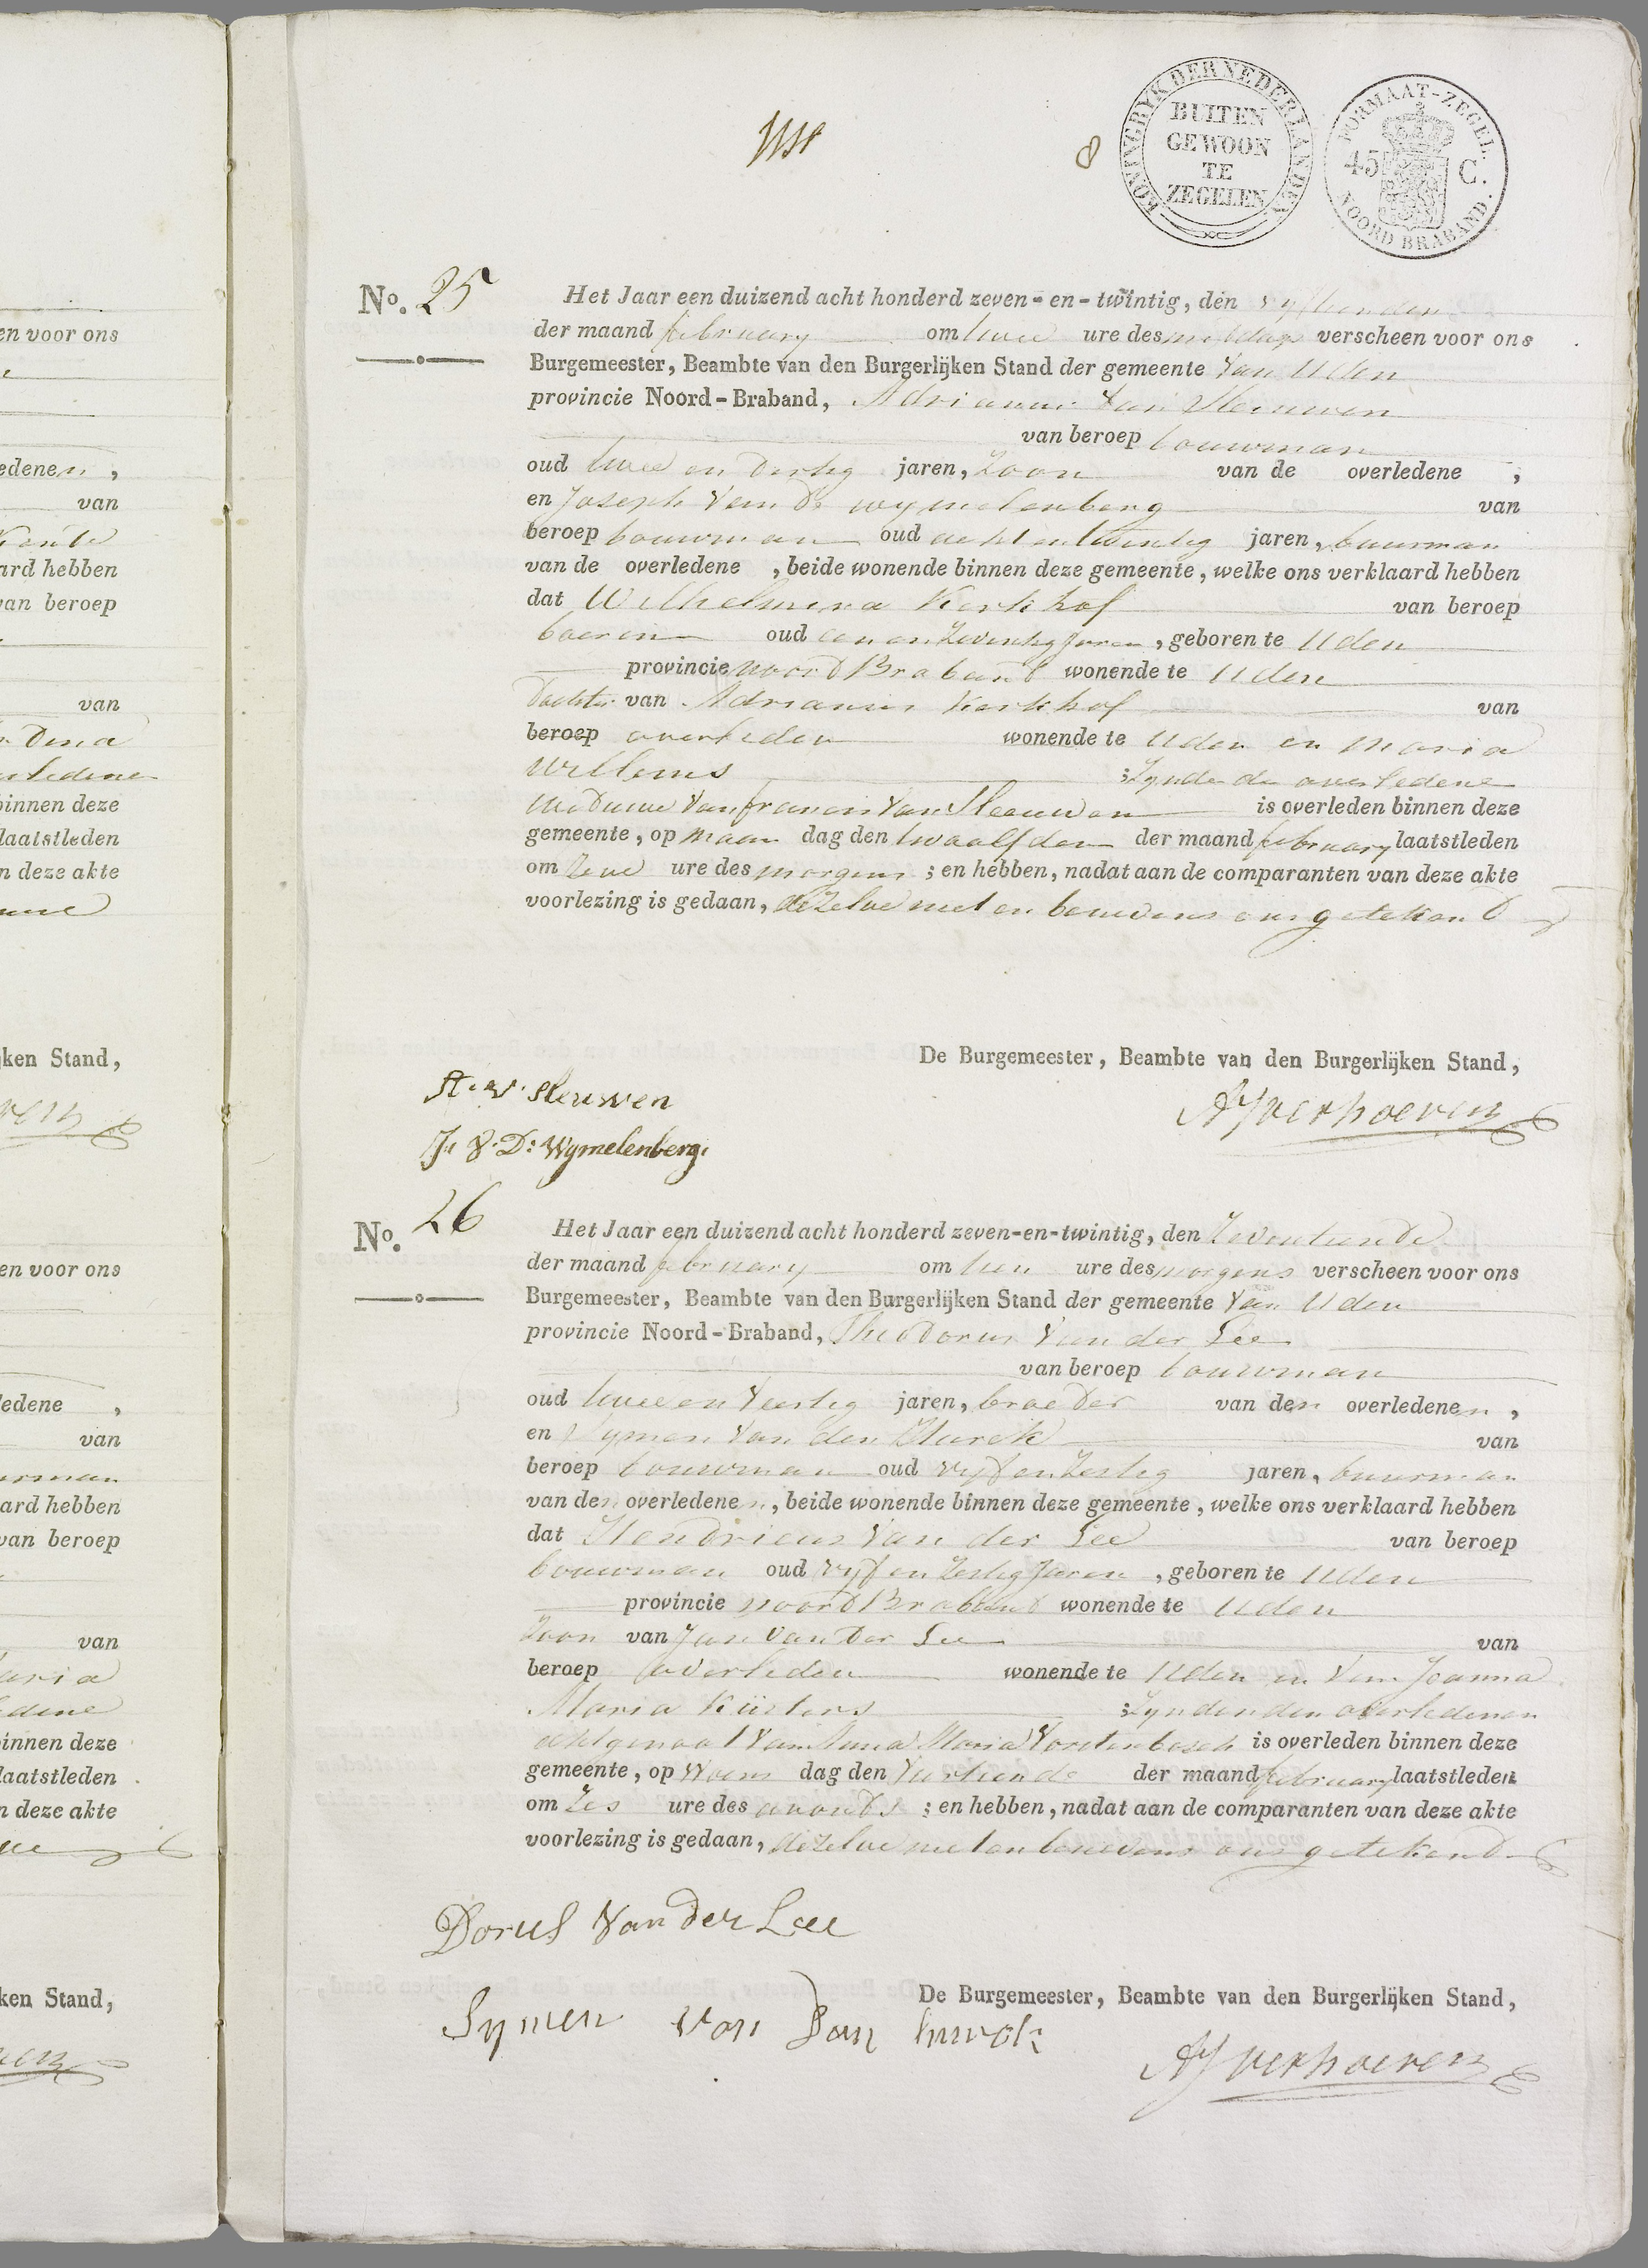 en voor ons
edenen,
van
ard hebben
van beroep
van
Dina
binnen deze
laatstleden
n deze akte
ken Stand,
en voor ons
edene ,
van
ard hebben
van beroep
van
binnen deze
laatstleden
n deze akte
ken Stand,
8
KONINGRYK DER NEDERLANDEN
BUITEN
GEWOON
TE
ZEGELEN
FORMAAT-ZEGEL.
45 C.
NOORD BRABAND.
No. 25
Het Jaar een duizend acht honderd zeven-en-twintig, den vyftienden
der maand february om twee ure des middags verscheen voor ons
Burgemeester, Beambte van den Burgerlijken Stand der gemeente Van Uden
provincie Noord-Braband, Adrianus Van Sleeuwen
van beroep bouwman
oud twee en dertig jaren, Zoon van de overledene ,
en Joseph Van De wymelenberg van
beroep bouwman oud acht en twintig jaren, buurman
van de overledene , beide wonende binnen deze gemeente, welke ons verklaard hebben
dat Wilhelmina Kerkhof van beroep
boerin oud een en Zeventig Jaren , geboren te Uden
provincie noord Braband wonende te Uden
Dochter van Adrianus Kerkhof van
beroep overleden wonende te Uden en Maria
Willems ; Zynde de overledene
Weduwe Van francis Van Sleeuwen is overleden binnen deze
gemeente, op maan dag den twaalfden der maand february laatstleden
om Zeve ure des morgens ; en hebben, nadat aan de comparanten van deze akte
voorlezing is gedaan, dezelve met en benevens ons getekend
De Burgemeester, Beambte van den Burgerlijken Stand,
A. V. Sleuwen
AJ verhoeven
J. V. D: Wymelenberg.
No. 26
Het Jaar een duizend acht honderd zeven-en-twintig, den Zeventiende
der maand february om tien ure des morgens verscheen voor ons
Burgemeester, Beambte van den Burgerlijken Stand der gemeente Van Uden
provincie Noord-Braband, Theodorus Van der Lee
van beroep bouwman
oud twee en Veertig jaren, broeder van den overledenen ,
en Symen Van den Hurck van
beroep bouwman oud vyf en Zestig jaren, buurman
van den overledenen , beide wonende binnen deze gemeente, welke ons verklaard hebben
dat Hendricus Van der Lee van beroep
bouwman oud vyf en Zestig Jaren , geboren te Uden
provincie noord Braband wonende te Uden
Zoon van Jan Van Der Lee van
beroep overleden wonende te Uden en Van Joanna
Maria Kusters ; Zynden den overledenen
echtgenoot Van Anna Maria Vorstenbosch is overleden binnen deze
gemeente, op Woens dag den Veertiende der maand february laatstleden
om Zes ure des avonds ; en hebben, nadat aan de comparanten van deze akte
voorlezing is gedaan, dezelve met en benevens ons getekend
Dorus Van der Lee
De Burgemeester, Beambte van den Burgerlijken Stand,
Symen Van Dan hurck
AJ verhoeven